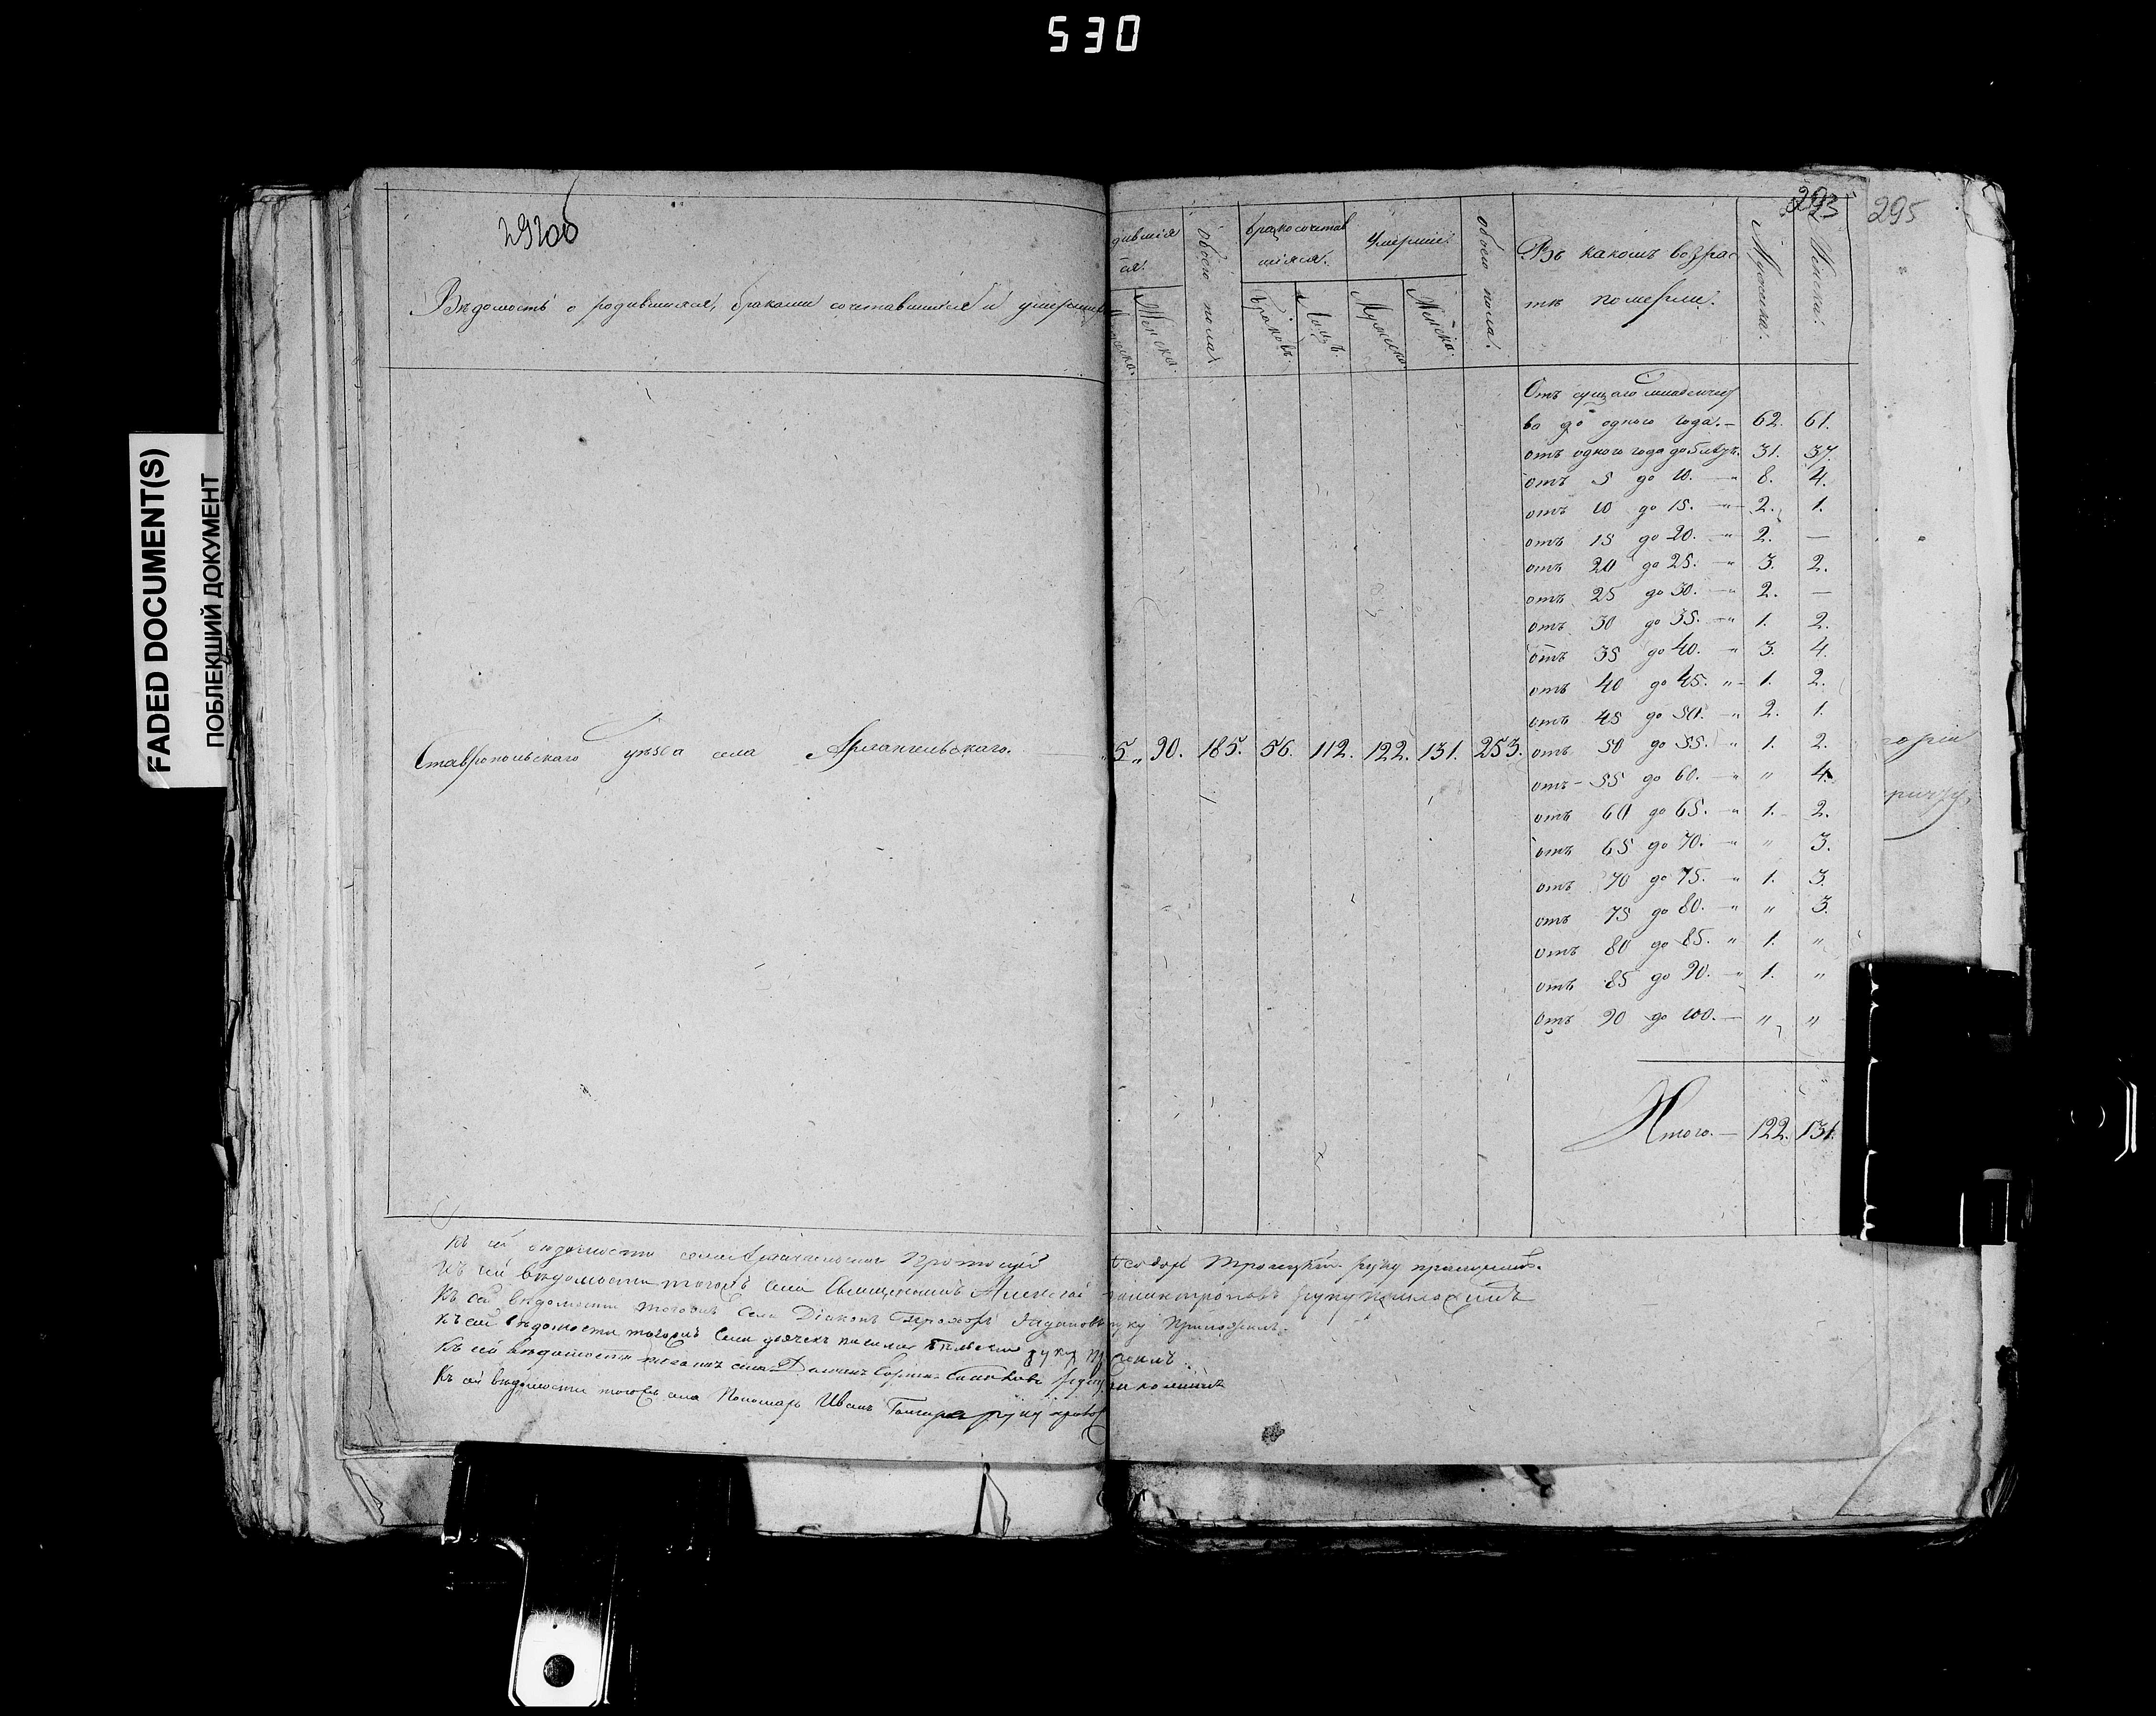 530
FADED DOCUMENT(S)
ПОБЛЕКШИЙ ДОКУМЕНТ
292об
293
295
Вѣдомость о родившихся, бракомъ сочетавшихся и умерших
дившіяся
обоего пола
бракосочетавшіяся.
Умершіе.
обоего пола.
Въ какомъ возрастѣ померли.
Мужеска.
Женска.
Женска.
браковъ.
Лицъ.
Мужеска.
Женска.
Ставропольскаго уѣзда села Архангельскаго.
5 „ 90. 185. 56. 112. 122. 131. 253.
Отъ сущаго младенчест
ва до одного года. – 62. 61.
отъ одного года до 5 лѣтъ. 31. 37.
отъ 5 до 10. — „ 8. 4.
отъ 10 до 15. — „ 2. 1.
отъ 15 до 20. — „ 2. —
отъ 20 до 25. — „ 3. 2.
отъ 25 до 30. — „ 2. —
отъ 30 до 35. — „ 1. 2.
отъ 35 до 40. — „ 3. 4.
отъ 40 до 45. „ – 1. 2.
отъ 45 до 50. — „ 2. 1.
отъ 50 до 55. „ 1. 2.
отъ 55 до 60. — „ „ 4.
отъ 60 до 65. — „ 1. 2.
отъ 65 до 70. — „ „ 3.
отъ 70 до 75. — „ 1. 3.
отъ 75 до 80. — „ „ 3.
отъ 80 до 85. „ 1. „
отъ 85 до 90. — „ 1. „
отъ 90 до 100. — „ „
Итого. — 122. 131.
Къ сей вѣдомости села Троицкій руку приложилъ.
Къ сей вѣдомости тогожъ села Священникъ Алексѣй руку приложилъ
Къ сей вѣдомости тогожъ села Діаконъ руку приложилъ.
Къ сей вѣдомости тогожъ села дьячекъ руку
Къ сей вѣдомости тогожъ села
Къ сей вѣдомости тогожъ села Пономарь Иванъ руку